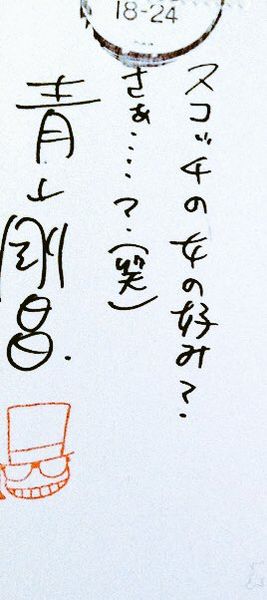 18-24
スコッチの女の好み?
さぁ……?(笑)
青山剛昌.